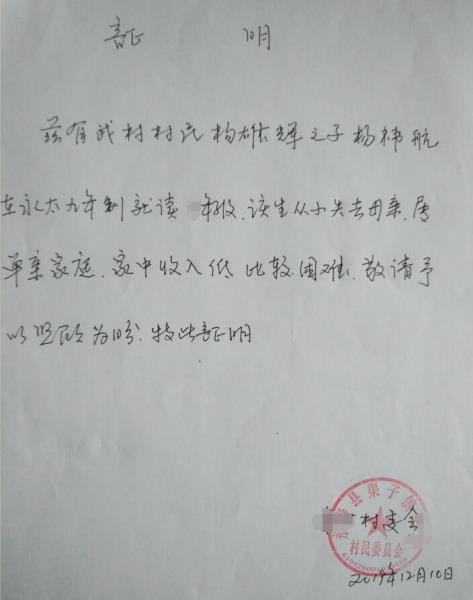 証 明
兹有我村村民杨雄辉之子杨祎航
在永太九年制就读 年级、该生从小失去母亲,属
单亲家庭、家中收入低 比较困难、敬请予
以照顾为盼. 特此証明
村委会
县渠子镇
村民委员会
2019年12月10日